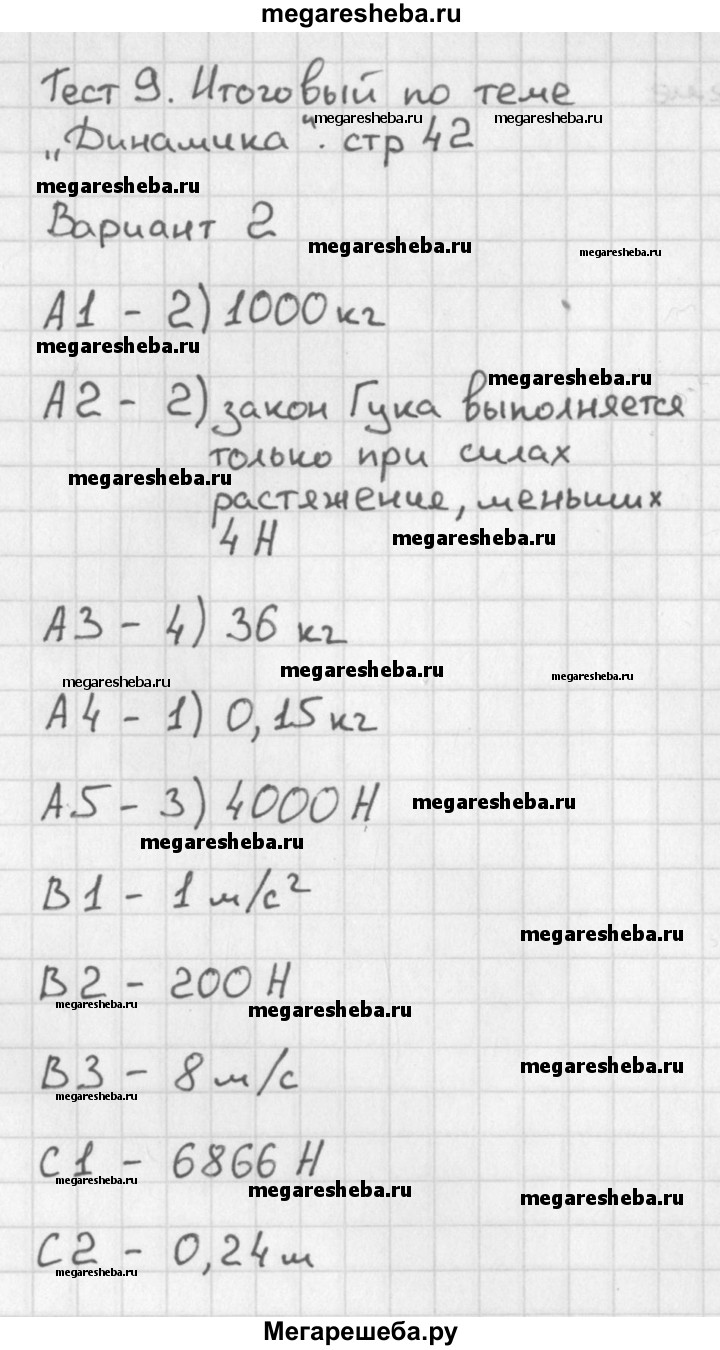 megaresheba.ru
Тест 9. Итоговый по теме
megaresheba.ru megaresheba.ru
„Динамика". стр 42
megaresheba.ru
Вариант 2
megaresheba.ru megaresheba.ru
А1 - 2) 1000 кг
megaresheba.ru
megaresheba.ru
А2 - 2) закон Гука выполняется
только при силах
megaresheba.ru
растяжение, меньших
4 Н
megaresheba.ru
А3 - 4) 36 кг
megaresheba.ru megaresheba.ru
megaresheba.ru
А4 - 1) 0,15 кг
А5 - 3) 4000 Н
megaresheba.ru
megaresheba.ru
В1 - 1 м/с²
megaresheba.ru
В2 - 200 Н
megaresheba.ru megaresheba.ru
В3 - 8 м/с
megaresheba.ru
megaresheba.ru
С1 - 6866 Н
megaresheba.ru megaresheba.ru megaresheba.ru
С2 - 0,24 м
megaresheba.ru
Мегарешеба.ру